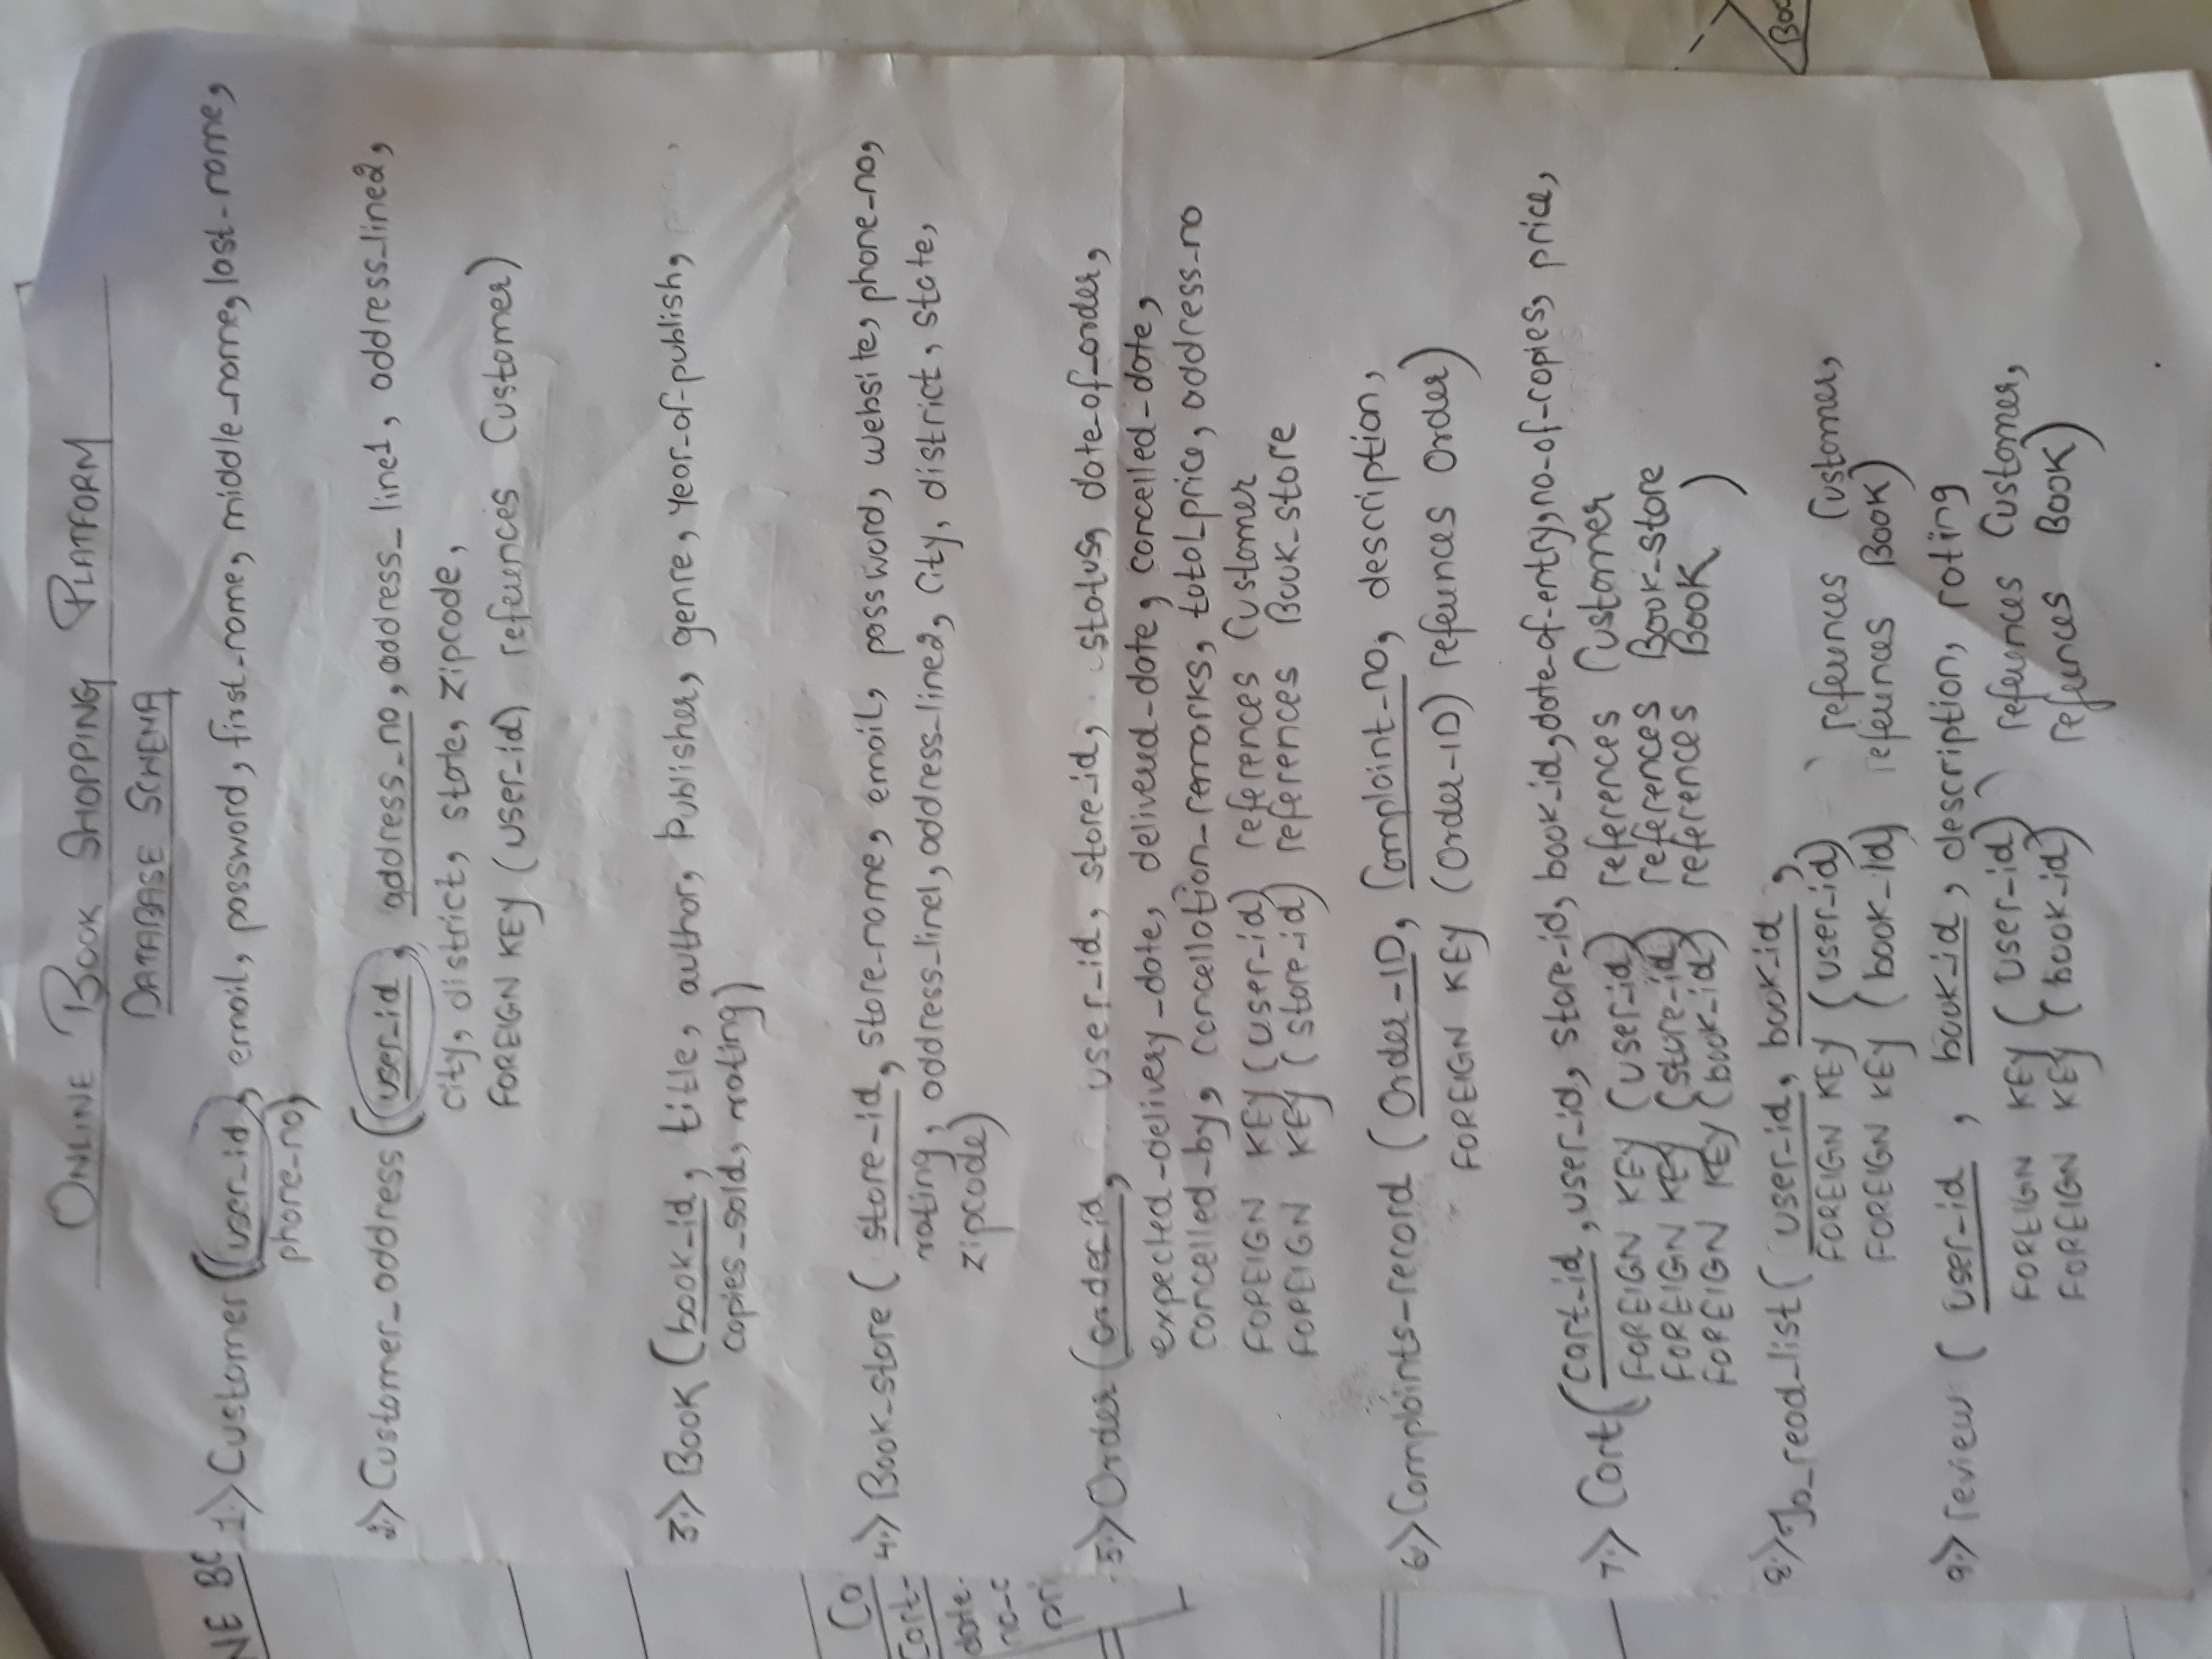 ONLINE BOOK SHOPPING PLATFORM
DATABASE SCHEMA
1.) Customer (user_id, email, password, first_name, middle_name, last_name,
phone_no)
2.) Customer_address (user_id, address_no, address_line1, address_line2,
city, district, state, zipcode,
FOREIGN KEY (user_id) references Customer)
3.) Book (book_id, title, author, publisher, genre, year_of_publish,
copies_sold, rating)
4.) Book_store (store_id, store_name, email, password, website, phone_no,
rating, address_line1, address_line2, city, district, state,
zipcode)
5.) Order (order_id, user_id, store_id, status, date_of_order,
expected_delivery_date, delivered_date, cancelled_date,
cancelled_by, cancellation_remarks, total_price, address_no
FOREIGN KEY (user_id) references Customer
FOREIGN KEY (store_id) references Book_store
6.) Complaints_record (Order_ID, Complaint_no, description,
FOREIGN KEY (Order_ID) references Order)
7.) Cart (cart_id, user_id, store_id, book_id, date_of_entry, no_of_copies, price,
FOREIGN KEY (user_id) references Customer
FOREIGN KEY (store_id) references Book_store
FOREIGN KEY (book_id) references Book )
8.) To_read_list (user_id, book_id,
FOREIGN KEY (user_id) references Customer,
FOREIGN KEY (book_id) references Book)
9.) review (user_id, book_id, description, rating
FOREIGN KEY (user_id) ) references Customer,
FOREIGN KEY (book_id) references Book)
NE BO
Co
cart-
date-
no-c
pri
Boo